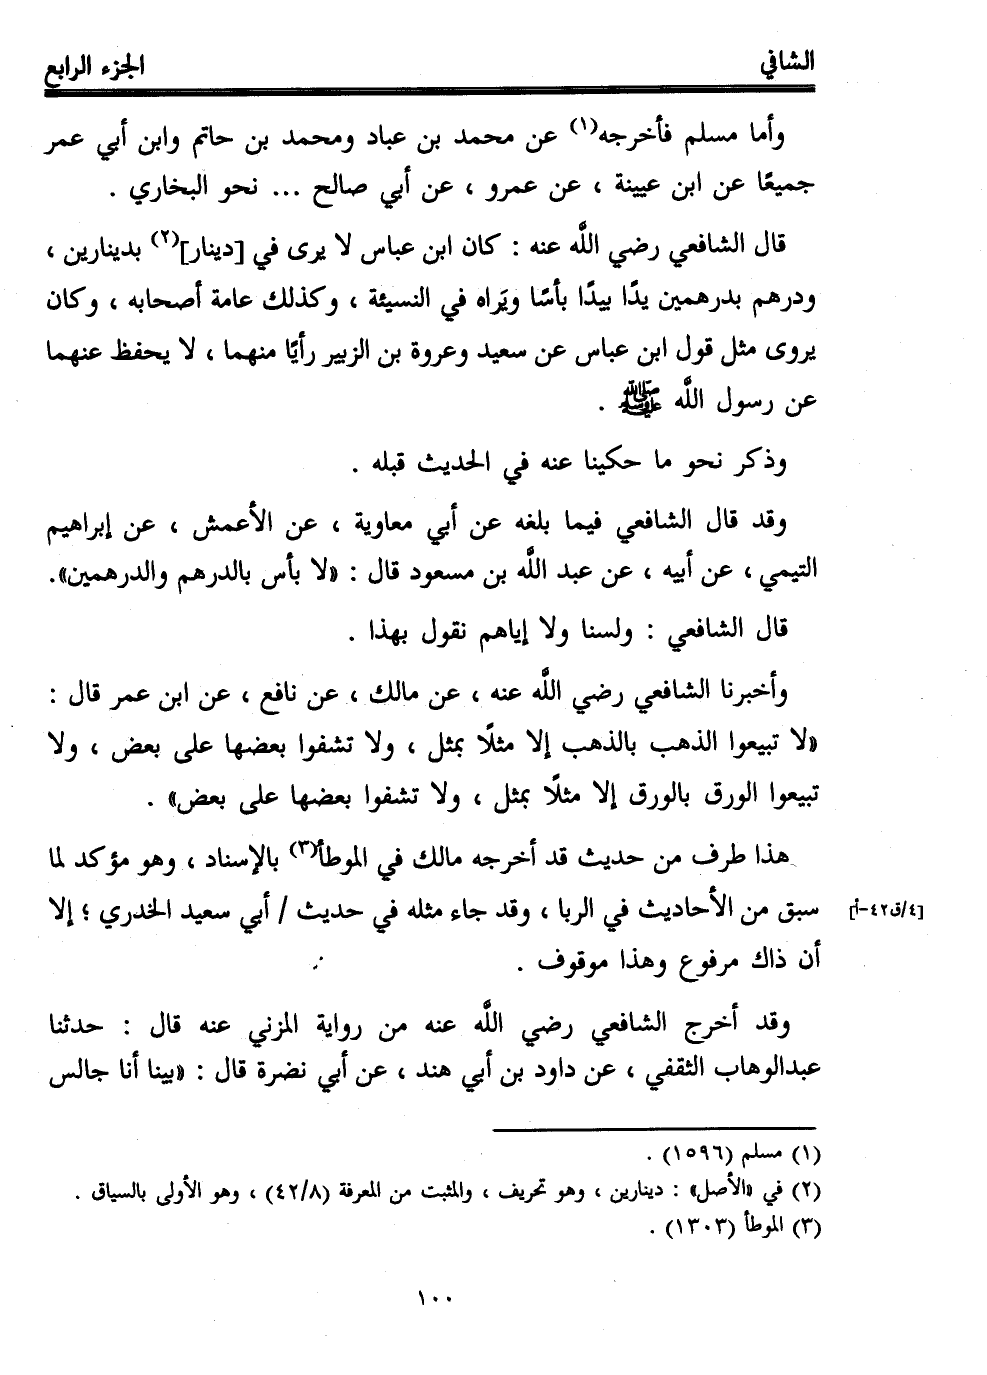 الشافي
الجزء الرابع
وأما مسلم فأخرجه(١) عن محمد بن عباد ومحمد بن حاتم وابن أبي عمر
جميعًا عن ابن عيينة ، عن عمرو ، عن أبي صالح ... نحو البخاري .
قال الشافعي رضي اللَّه عنه : كان ابن عباس لا يرى في [دينار](٢) بدينارين ،
ودرهم بدرهمين يدًا بيدًا بأسًا ويَراه في النسيئة ، وكذلك عامة أصحابه ، وكان
يروى مثل قول ابن عباس عن سعيد وعروة بن الزبير رأيًا منهما ، لا يحفظ عنهما
عن رسول اللَّه ﷺ .
وذكر نحو ما حكينا عنه في الحديث قبله .
وقد قال الشافعي فيما بلغه عن أبي معاوية ، عن الأعمش ، عن إبراهيم
التيمي ، عن أبيه ، عن عبد اللَّه بن مسعود قال : «لا بأس بالدرهم والدرهمين».
قال الشافعي : ولسنا ولا إياهم نقول بهذا .
وأخبرنا الشافعي رضي اللَّه عنه ، عن مالك ، عن نافع ، عن ابن عمر قال :
«لا تبيعوا الذهب بالذهب إلا مثلًا بمثل ، ولا تشفوا بعضها على بعض ، ولا
تبيعوا الورق بالورق إلا مثلًا بمثل ، ولا تشفوا بعضها على بعض» .
هذا طرف من حديث قد أخرجه مالك في الموطأ(٣) بالإسناد ، وهو مؤكد لما
سبق من الأحاديث في الربا ، وقد جاء مثله في حديث / أبي سعيد الخدري ؛ إلا
[٤/ق٤٢-أ]
أن ذاك مرفوع وهذا موقوف .
وقد أخرج الشافعي رضي اللَّه عنه من رواية المزني عنه قال : حدثنا
عبدالوهاب الثقفي ، عن داود بن أبي هند ، عن أبي نضرة قال : «بينا أنا جالس
(١) مسلم (١٥٩٦) .
(٢) في «الأصل» : دينارين ، وهو تحريف ، والمثبت من المعرفة (٤٢/٨) ، وهو الأولى بالسياق .
(٣) الموطأ (١٣٠٣) .
١٠٠